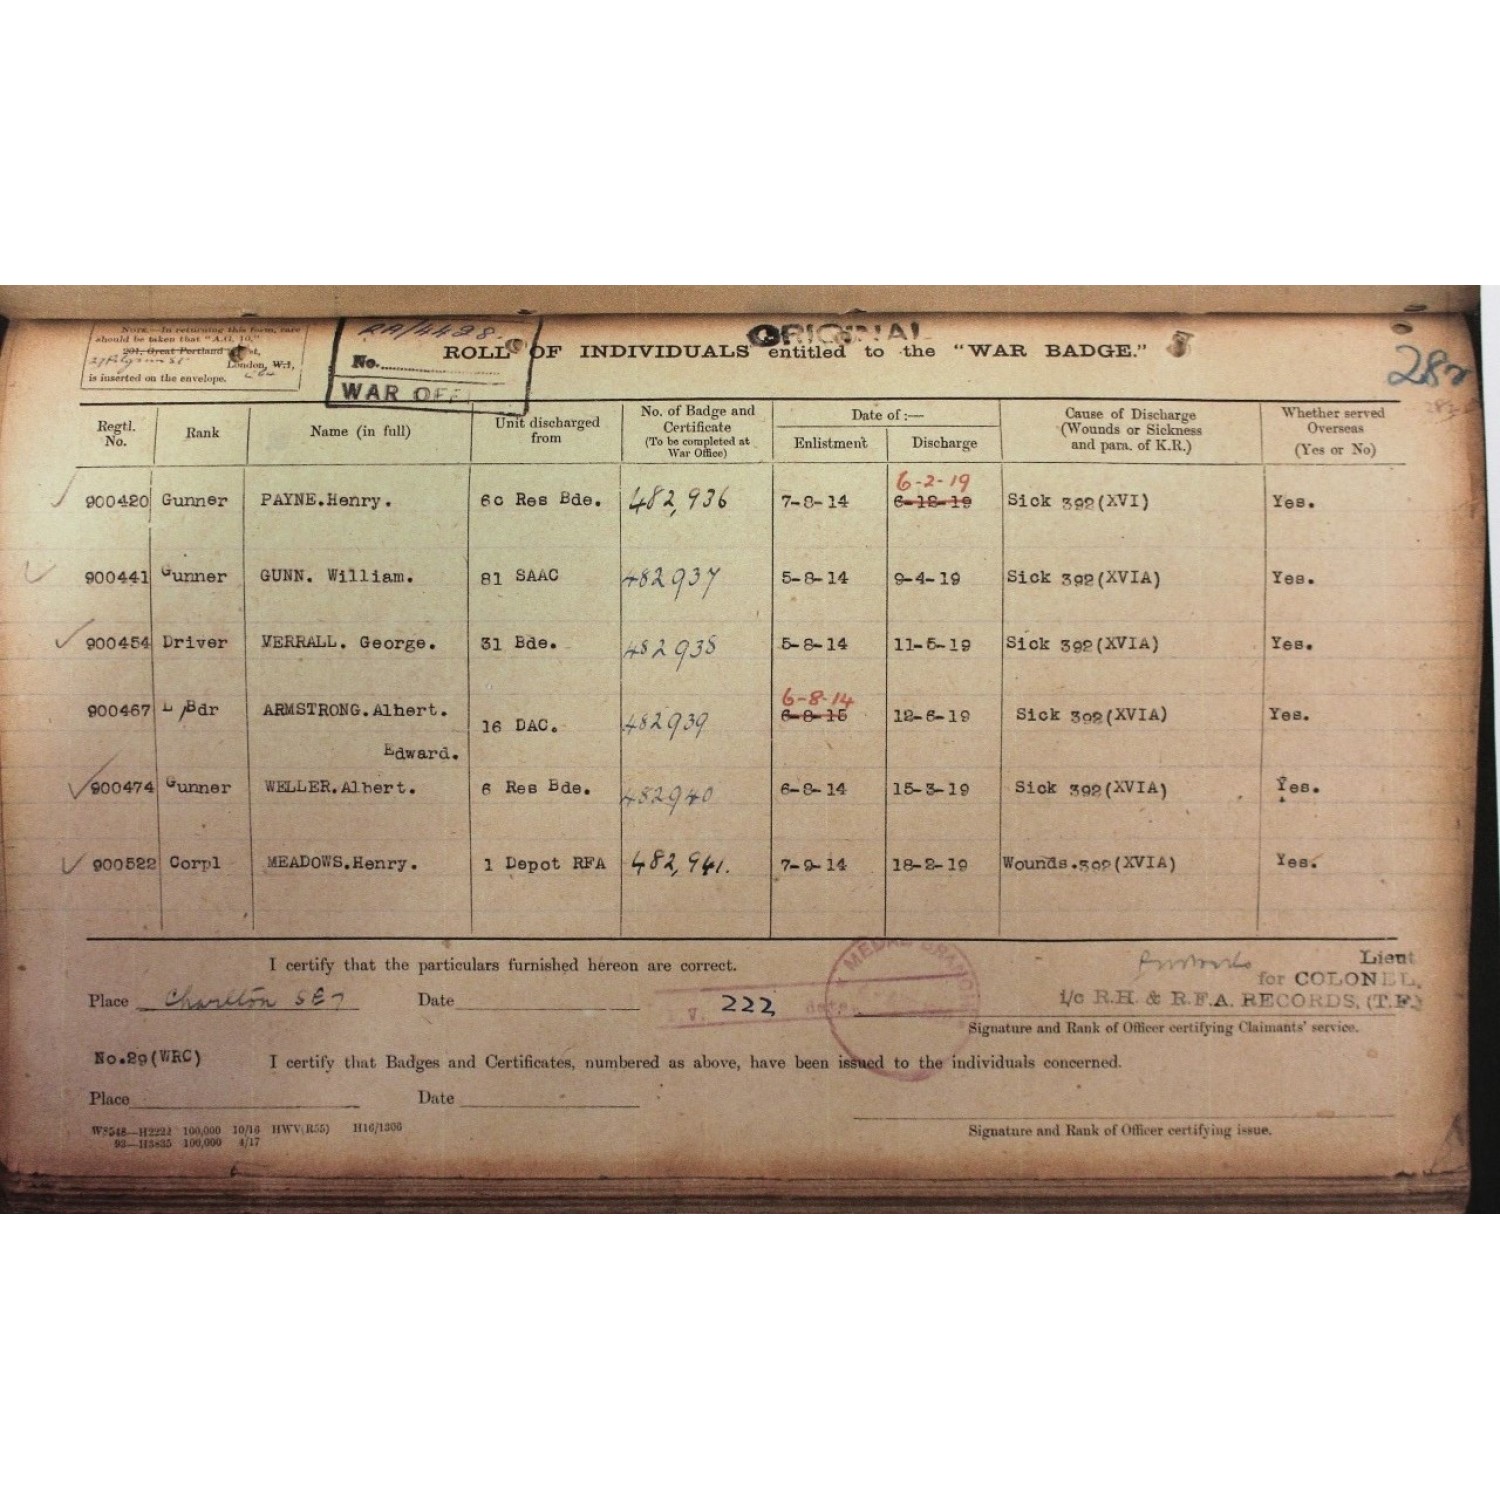 NOTE.—In returning this form, care
should be taken that "A.G. 10,"
201, Great Portland
London, W.1,
is inserted on the envelope.
RA/4428.
No.
WAR OFF
ORIGINAL
ROLL OF INDIVIDUALS entitled to the "WAR BADGE."
282
Regtl. No. Rank Name (in full) Unit discharged from No. of Badge and Certificate (To be completed at War Office) Date of :— Enlistment Discharge Cause of Discharge (Wounds or Sickness and para. of K.R.) Whether served Overseas (Yes or No)
6-2-19
900420 Gunner PAYNE.Henry. 6c Res Bde. 482,936 7-8-14 6-12-19 Sick 392(XVI) Yes.
900441 Gunner GUNN. William. 81 SAAC 482937 5-8-14 9-4-19 Sick 392(XVIA) Yes.
900454 Driver VERRALL. George. 31 Bde. 482938 5-8-14 11-5-19 Sick 392(XVIA) Yes.
6-8-14
900467 L/Bdr ARMSTRONG.Albert. 16 DAC. 482939 6-8-15 12-6-19 Sick 392(XVIA) Yes.
Edward.
900474 Gunner WELLER.Albert. 6 Res Bde. 482940 6-8-14 15-3-19 Sick 392(XVIA) Yes.
900522 Corpl MEADOWS.Henry. 1 Depot RFA 482,941. 7-9-14 18-2-19 Wounds.392(XVIA) Yes.
I certify that the particulars furnished hereon are correct.
MEDAL BRANCH
Lieut
for COLONEL,
Place Charlton SE7 Date 222
i/c R.H. & R.F.A. RECORDS, (T.F.)
Signature and Rank of Officer certifying Claimants' service.
No.29(WRC) I certify that Badges and Certificates, numbered as above, have been issued to the individuals concerned.
Place Date
W8548—H2222 100,000 10/16 HWV(R55) H16/1306
93—H3835 100,000 4/17
Signature and Rank of Officer certifying issue.